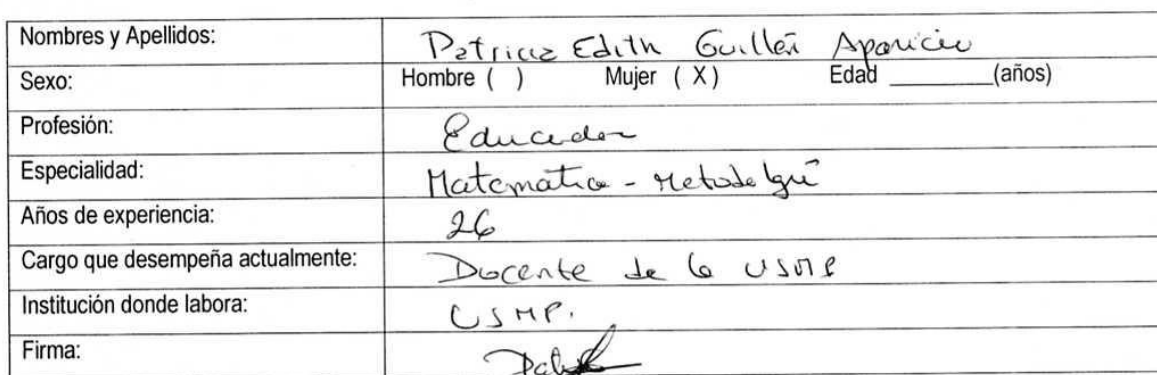 Nombres y Apellidos: Patricia Edith Guillén Aparicio
Sexo: Hombre ( ) Mujer ( X ) Edad ________(años)
Profesión: Educador
Especialidad: Matemática - Metodología
Años de experiencia: 26
Cargo que desempeña actualmente: Docente de la USMP
Institución donde labora: USMP.
Firma: